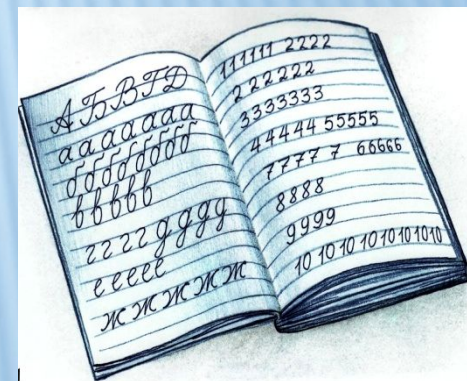 АБВГД
ааааааа
бббббббб
ввввв
гггг дддд
еееее
жжжжж
111111 2222
222222
3333333
44444 55555
7777 7 66666
8888
9999
10 10 10 1010101010